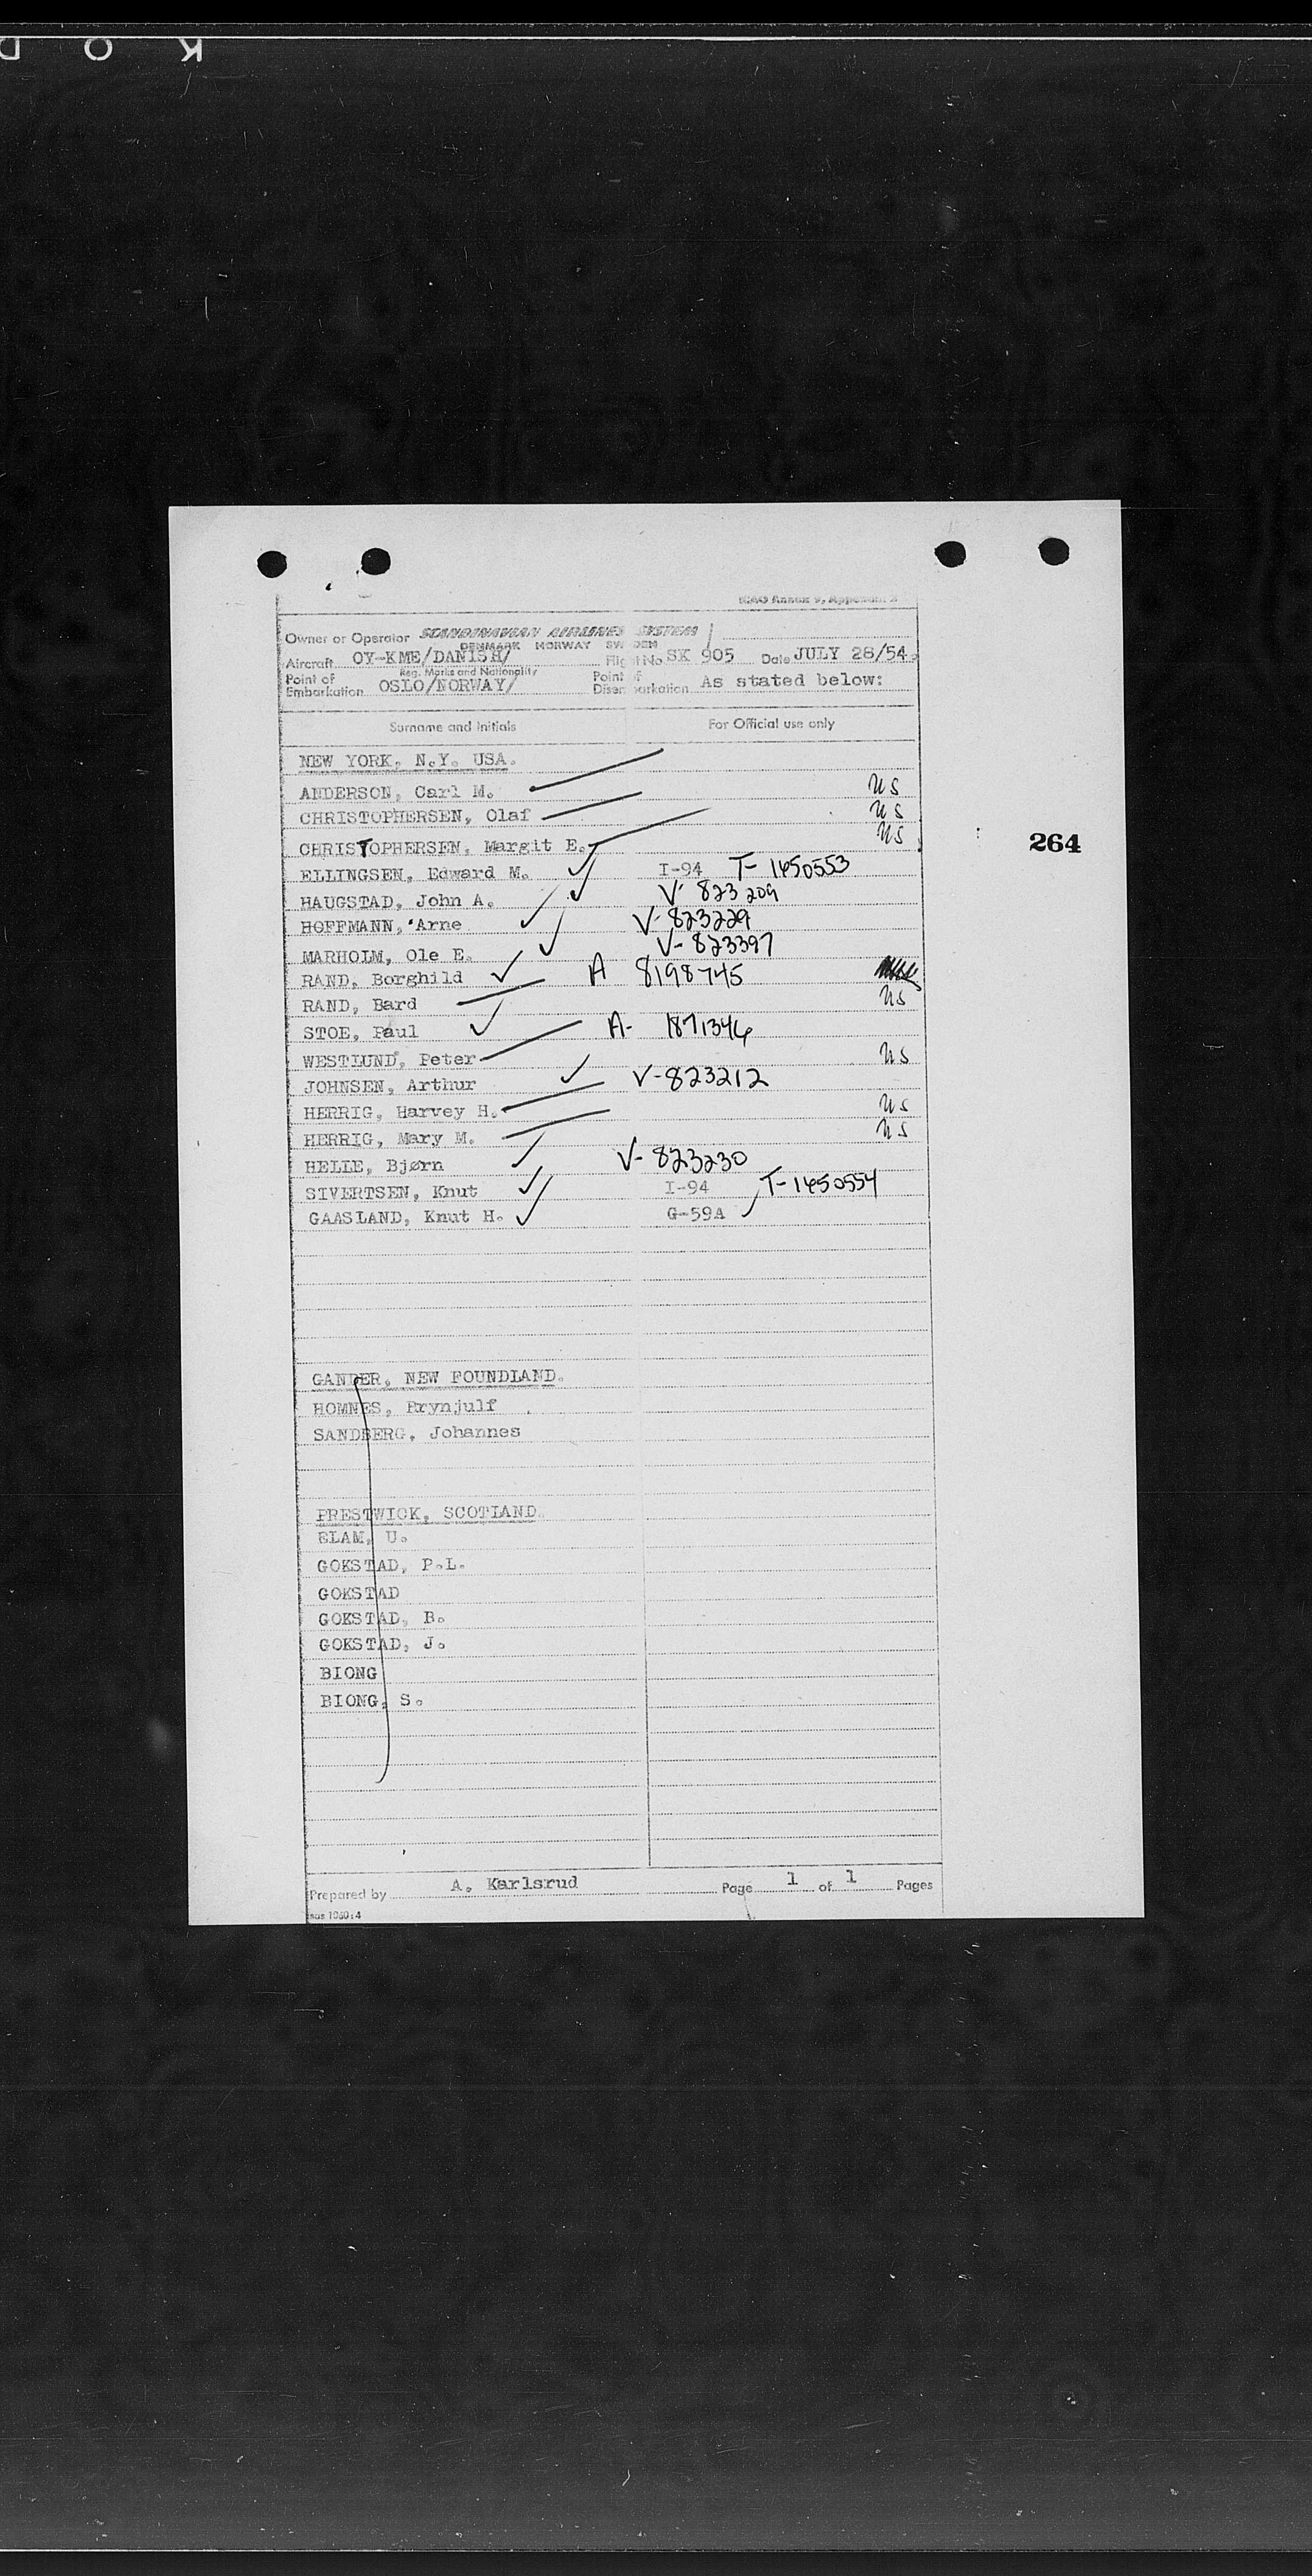 K O D
ICAO Annex 9, Appendix 3
Owner or Operator SCANDINAVIAN AIRLINES SYSTEM
DENMARK NORWAY SWEDEN
Aircraft OY-KME/DANISH/ Flight No SK 905 Date JULY 28/54.
Reg. Marks and Nationality
Point of Embarkation OSLO/NORWAY/ Point of Disembarkation As stated below:
Surname and Initials For Official use only
NEW YORK, N.Y. USA.
ANDERSON, Carl M. US
CHRISTOPHERSEN, Olaf US
CHRISTOPHERSEN, Margit E. US
264
ELLINGSEN, Edward M. I-94 T-1450553
HAUGSTAD, John A. V-823209
HOFFMANN, Arne V-823229
MARHOLM, Ole E. V-823397
RAND, Borghild A 8198745
RAND, Bard US
STOE, Paul A- 1871346
WESTLUND, Peter US
JOHNSEN, Arthur V-823212
HERRIG, Harvey H. US
HERRIG, Mary M. US
HELLE, Bjørn V-823230
SIVERTSEN, Knut I-94 T-1450554
GAASLAND, Knut H. G-59A
GANDER, NEW FOUNDLAND.
HOMNES, Brynjulf
SANDBERG, Johannes
PRESTWICK, SCOTLAND
ELAM, U.
GOKSTAD, P.L.
GOKSTAD
GOKSTAD, B.
GOKSTAD, J.
BIONG
BIONG, S.
Prepared by A. Karlsrud Page 1 of 1 Pages
sas 1060:4